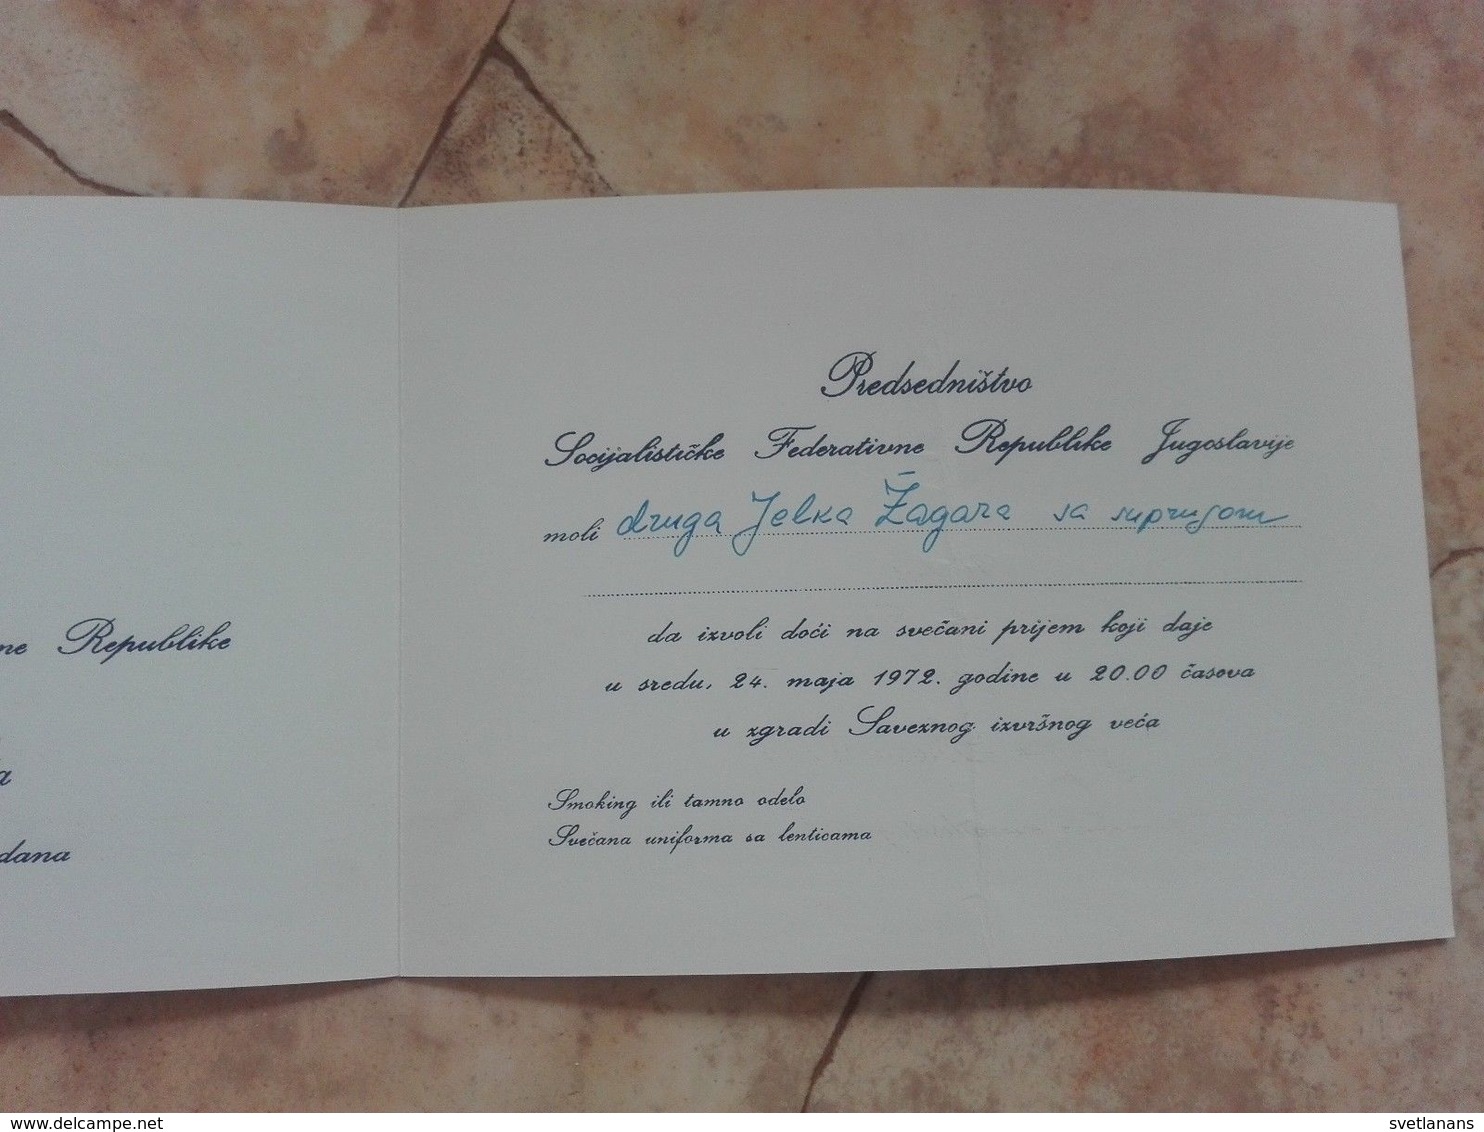 ne Republike
a
dana
Predsedništvo
Socijalističke Federativne Republike Jugoslavije
moli druga Jelka Žagara sa suprugom
da izvoli doći na svečani prijem koji daje
u sredu, 24. maja 1972. godine u 20.00 časova
u zgradi Saveznog izvršnog veća
Smoking ili tamno odelo
Svečana uniforma sa lenticama
www.delcampe.net
svetlanans